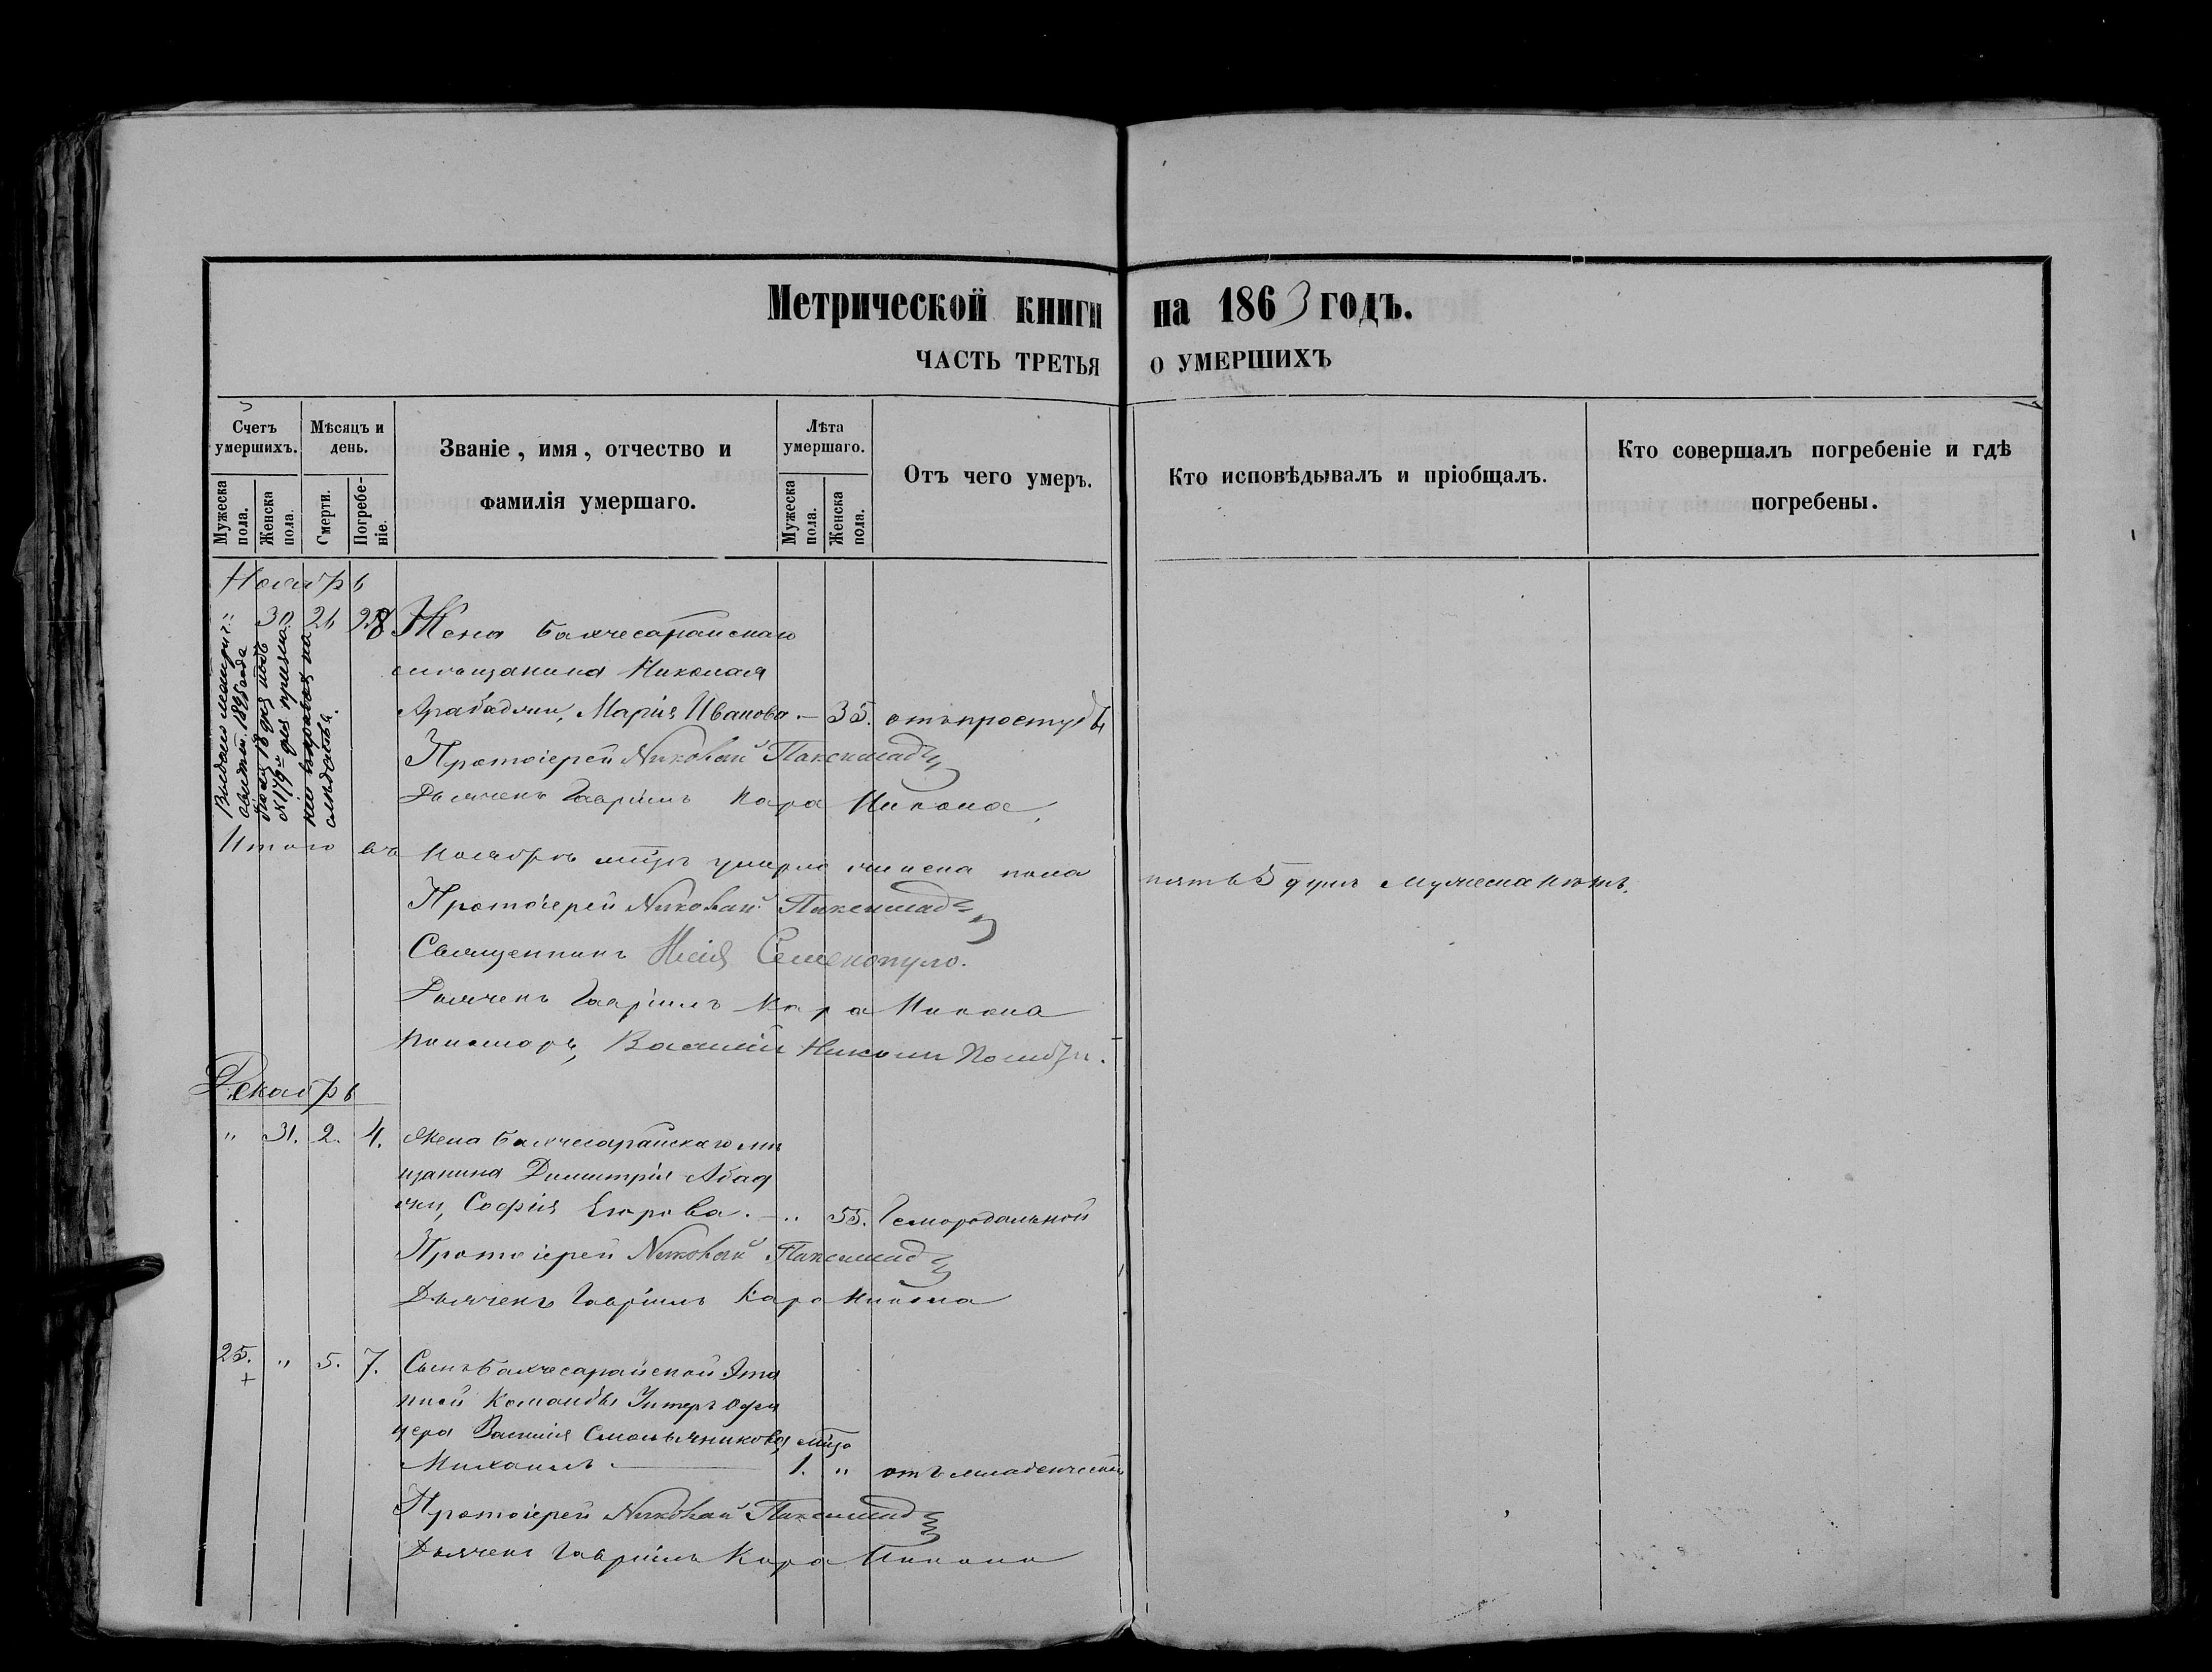 Метрической книги на 1863 годъ.
ЧАСТЬ ТРЕТЬЯ О УМЕРШИХЪ
Счетъ умершихъ.
Мужеска пола.
Женска пола.
Мѣсяцъ и день.
Смерти.
Погребеніе.
Званіе, имя, отчество и
фамилія умершаго.
Лѣта умершаго.
Мужеска пола.
Женска пола.
Отъ чего умеръ.
Кто исповѣдывалъ и пріобщалъ.
Кто совершалъ погребеніе и гдѣ
погребены.
Ноябрь
" 30 26 28 Жена Бахчесарайскаго
мѣщанина Николая
Арабаджи, Марія Иванова. — 35. отъ простуды
Протоіерей Николай Паксимад
Дьячекъ Гавріилъ Кара Никола
Итого въ Ноябрѣ мцѣ умерло женска пола пять 5 душъ мужеска нѣтъ.
Протоіерей Николай Паксимад
Священникъ Илія Семенопуло.
Дьячекъ Гавріилъ Кара Никола
Пономарь, Василій Николи
Декабрь
" 31. 2. 4. Жена Бахчесарайскаго мѣ
щанина Димитрія Абад
жи, София Егорова. — " 55. Гемородальной
Протоіерей Николай Паксимад
Дьячекъ Гавріилъ Кара Никола
25. " 5. 7. Сынъ Бахчесарайской Эта
пной Команды Унтеръ Офи
цера Василія Смольянникова, мцѣ
Михаилъ — 1. " отъ младенческой
Протоіерей Николай Паксимад
Дьячекъ Гавріилъ Кара Никола